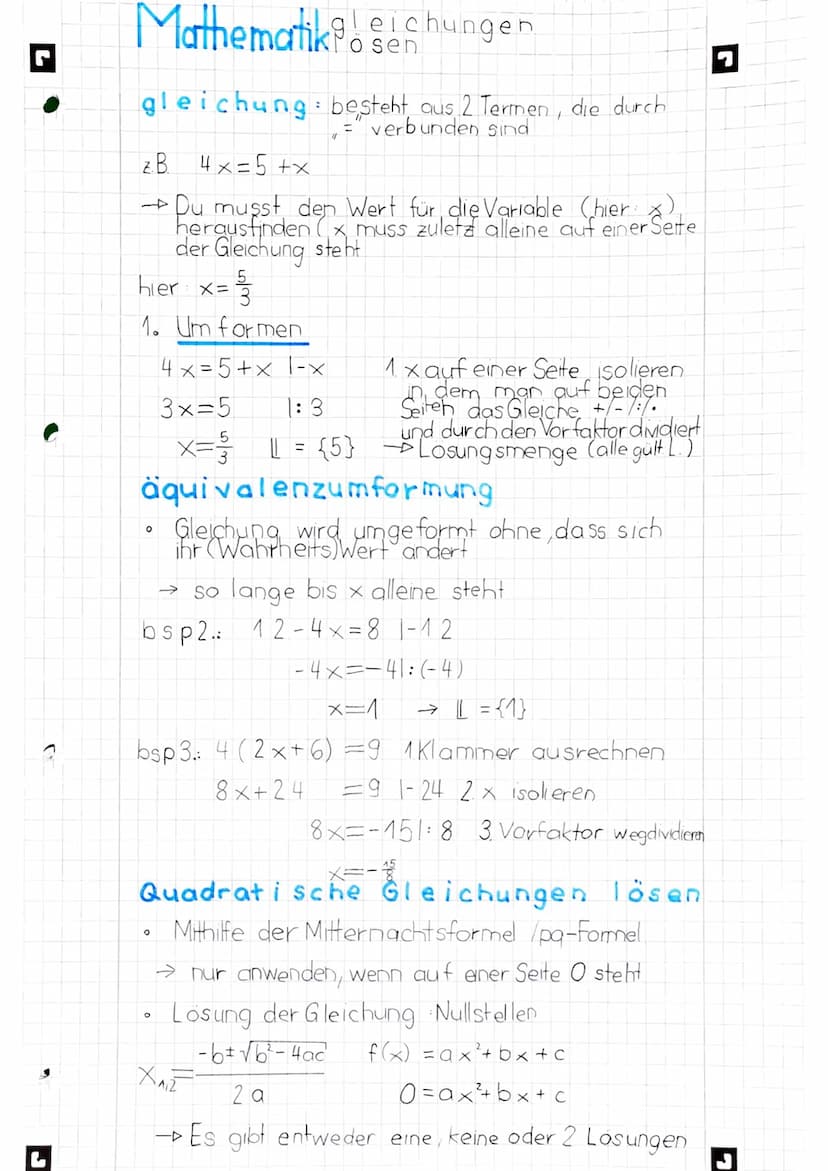 Mathematik gleichungen
lösen
gleichung: besteht aus 2 Termen, die durch
„=" verbunden sind
z.B. 4x=5+x
→ Du musst den Wert für die Variable (hier: x)
herausfinden (x muss zuletzt alleine auf einer Seite
der Gleichung steht
hier: x=5/3
1. Umformen
4x=5+x |-x 1. x auf einer Seite isolieren
in dem man auf beiden
3x=5 |:3 Seiten das Gleiche +/-/:/·
und durch den Vorfaktor dividiert
x=5/3 𝕃 = {5} → Lösungsmenge (alle gült L.)
äquivalenzumformung
• Gleichung wird umgeformt ohne, dass sich
ihr (Wahrheits)Wert ändert
→ so lange bis x alleine steht
bsp2.: 12-4x=8 |-12
-4x=-4|:(-4)
x=1 → 𝕃 ={1}
bsp3.: 4(2x+6)=9 1 Klammer ausrechnen
8x+24 =9 |-24 2. x isolieren
8x=-15|:8 3. Vorfaktor wegdividieren
x=-15/8
Quadratische Gleichungen lösen
• Mithilfe der Mitternachtsformel /pq-Formel
→ nur anwenden, wenn auf einer Seite 0 steht
• Lösung der Gleichung: Nullstellen
x₁,₂= (-b±√(b²-4ac))/(2a) f(x) =ax²+bx+c
0=ax²+bx+c
→ Es gibt entweder eine, keine oder 2 Lösungen